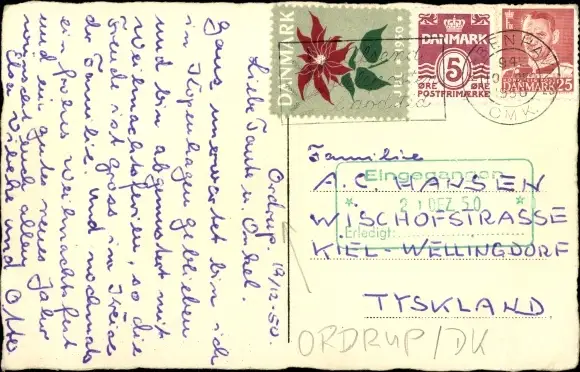 Ordrup, 19/12.50.
Liebe Tante u. Onkel.
Ganz unerwartet bin ich
in Kopenhagen geblieben
und bin abgemustert mit
Weihnachtsferien, so die
Freude ist gross im Kreise
der Familie. Und nochmals
ein frohes Weihnachtsfest
und ein gutes neues Jahr
wünscht euch allen
Elsa, Wiebke und Otto
DANMARK
JUL 1950
DANMARK
5
ØRE ØRE
POSTFRIMÆRKE
DANMARK 25
KØBENHAVN
OMK.
Familie
A.C. HANSEN
WISCHOFSTRASSE
KIEL-WELLINGDORF
TYSKLAND
Eingegangen
* 21 DEZ. 50 *
Erledigt:
ORDRUP/DK